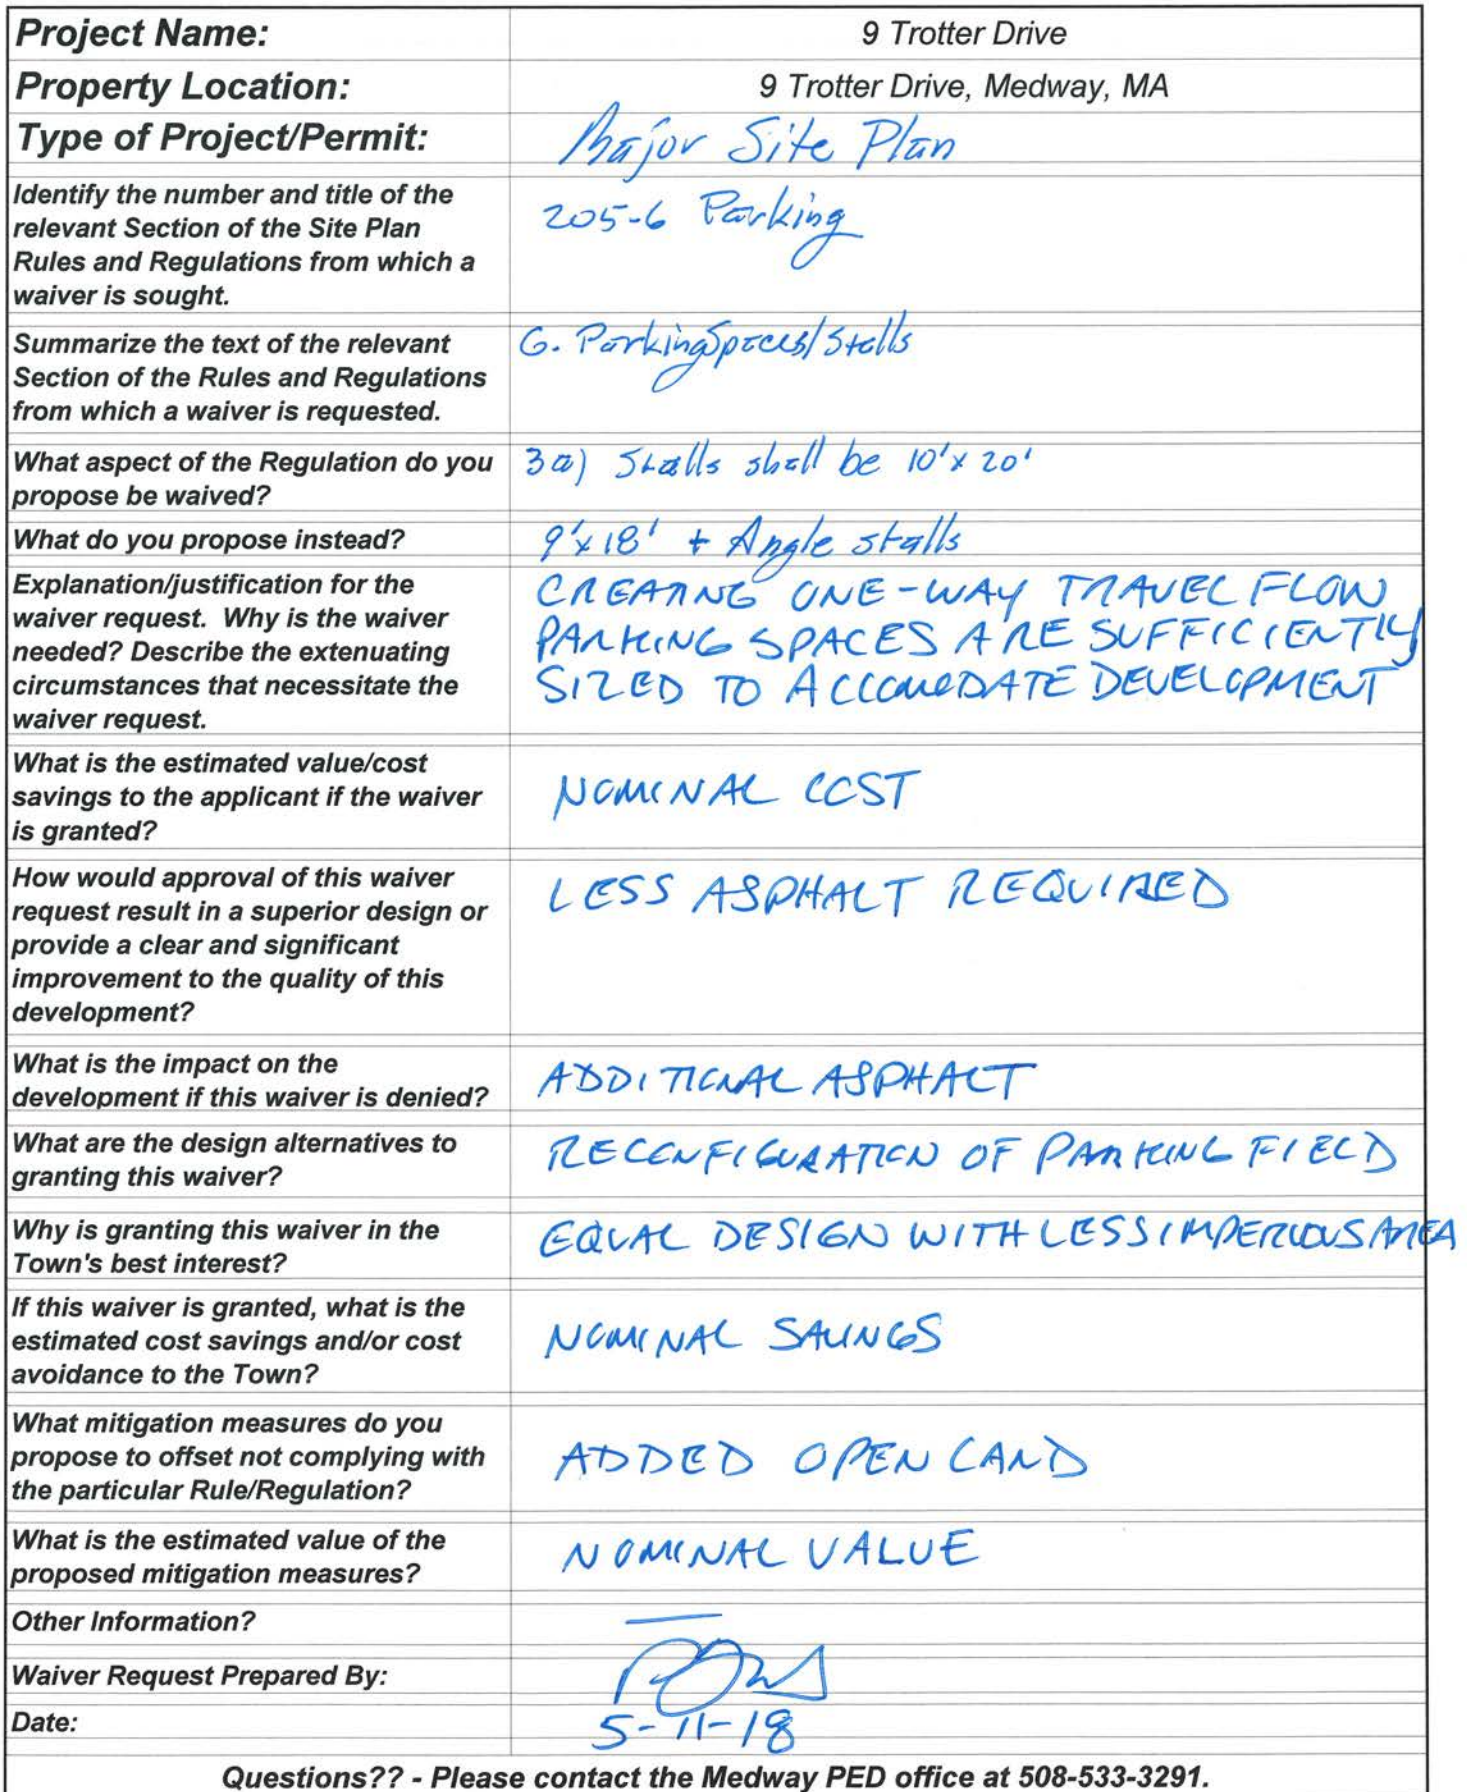 Project Name: 9 Trotter Drive
Property Location: 9 Trotter Drive, Medway, MA
Type of Project/Permit: Major Site Plan
Identify the number and title of the
relevant Section of the Site Plan
Rules and Regulations from which a
waiver is sought.
205-6 Parking
Summarize the text of the relevant
Section of the Rules and Regulations
from which a waiver is requested.
G. Parking Spaces/Stalls
What aspect of the Regulation do you
propose be waived?
3a) Stalls shall be 10'x20'
What do you propose instead? 9'x18' + Angle stalls
Explanation/justification for the
waiver request. Why is the waiver
needed? Describe the extenuating
circumstances that necessitate the
waiver request.
CREATING ONE-WAY TRAVEL FLOW
PARKING SPACES ARE SUFFICIENTLY
SIZED TO ACCOMODATE DEVELOPMENT
What is the estimated value/cost
savings to the applicant if the waiver
is granted?
NOMINAL COST
How would approval of this waiver
request result in a superior design or
provide a clear and significant
improvement to the quality of this
development?
LESS ASPHALT REQUIRED
What is the impact on the
development if this waiver is denied?
ADDITIONAL ASPHALT
What are the design alternatives to
granting this waiver?
RECONFIGURATION OF PARKING FIELD
Why is granting this waiver in the
Town's best interest?
EQUAL DESIGN WITH LESS IMPERVIOUS AREA
If this waiver is granted, what is the
estimated cost savings and/or cost
avoidance to the Town?
NOMINAL SAVINGS
What mitigation measures do you
propose to offset not complying with
the particular Rule/Regulation?
ADDED OPEN LAND
What is the estimated value of the
proposed mitigation measures?
NOMINAL VALUE
Other Information? —
Waiver Request Prepared By:
Date: 5-11-18
Questions?? - Please contact the Medway PED office at 508-533-3291.